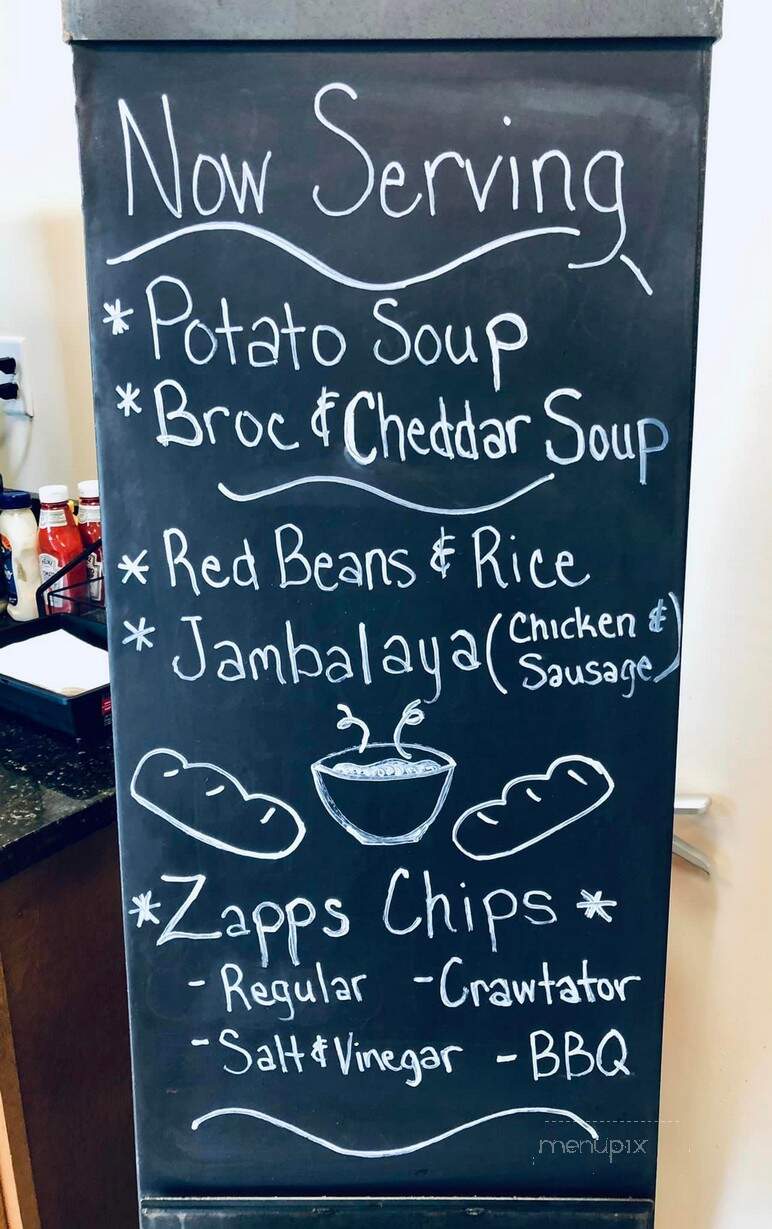 Now Serving
* Potato Soup
* Broc & Cheddar Soup
* Red Beans & Rice
* Jambalaya (Chicken & Sausage)
* Zapps Chips *
- Regular - Crawtator
- Salt & Vinegar - BBQ
menupix
HEINZ